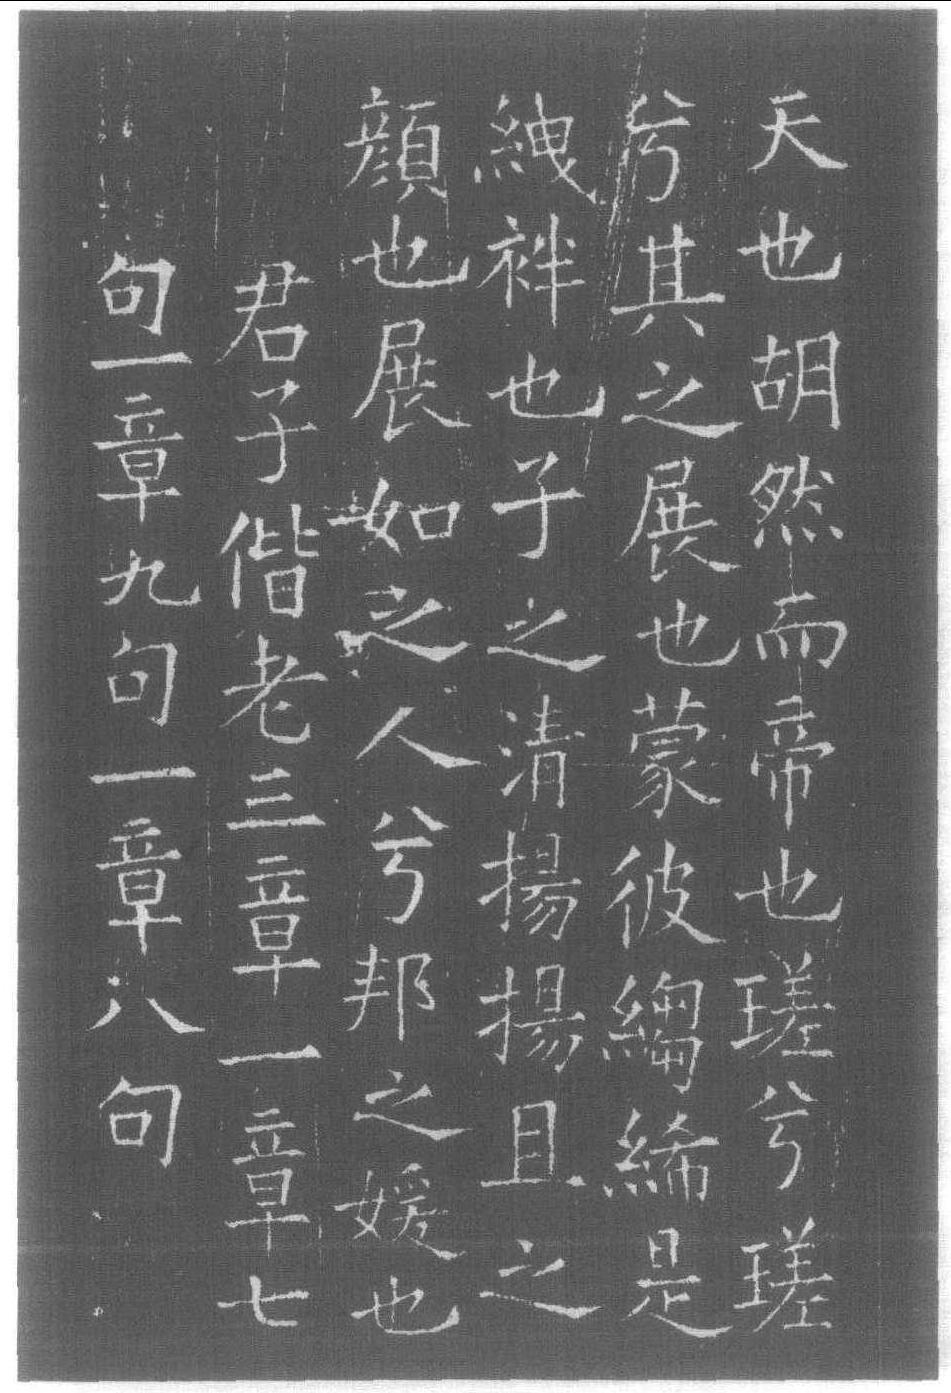 天也胡然而帝也瑳兮瑳
兮其之展也蒙彼縐絺是
絏袢也子之清揚揚且之
顔也展如之人兮邦之媛也
君子偕老三章一章七
句一章九句一章八句